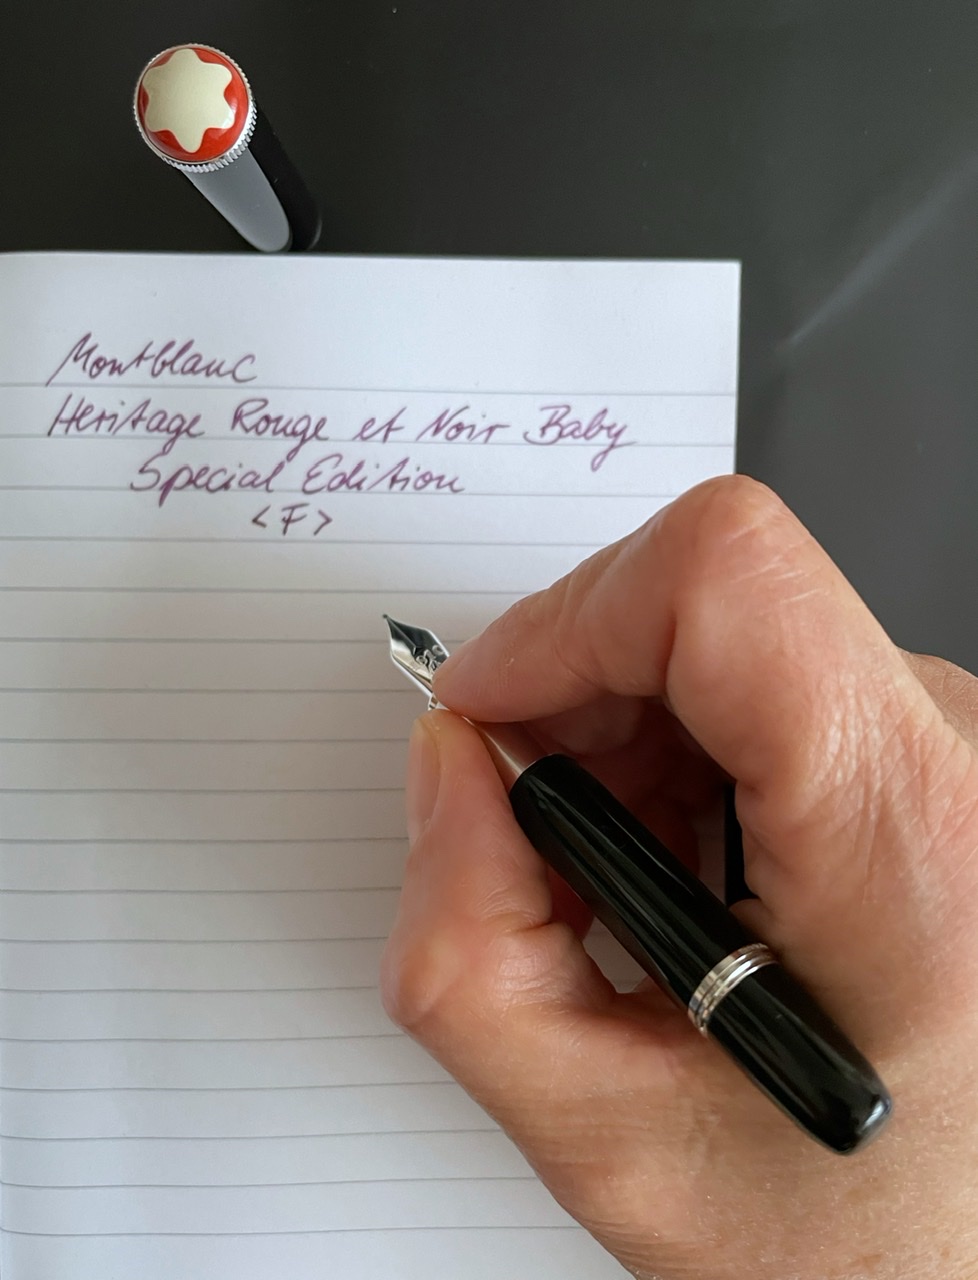 Montblanc
Heritage Rouge et Noir Baby
Special Edition
<F>